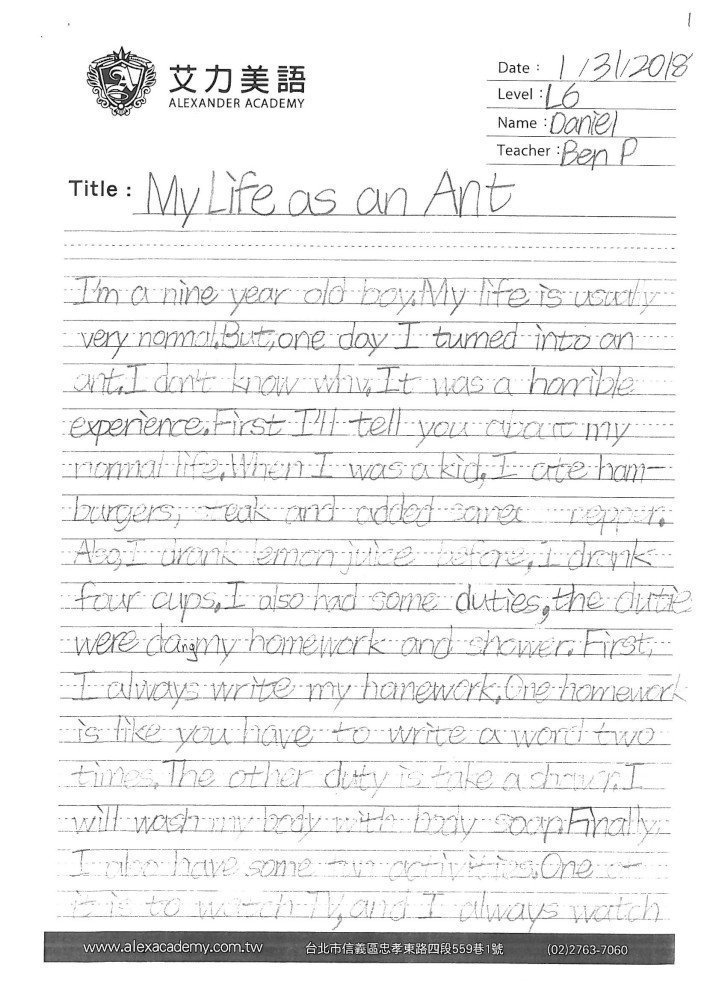 1
艾力美語
ALEXANDER ACADEMY
Date : 1/31/2018
Level : L6
Name : Daniel
Teacher : Ben P
Title : My Life as an Ant
I'm a nine year old boy. My life is usually
very normal. But, one day I turned into an
ant. I don't know why. It was a horrible
experience. First I'll tell you about my
normal life. When I was a kid, I ate ham-
burgers, and added some pepper.
Also, I drank lemon juice before, I drank
four cups. I also had some duties, the dutie
were doing my homework and shower. First,
I always write my homework. One homework
is like you have to write a word two
times. The other duty is take a shower. I
will wash my body with body soap. Finally,
I also have some fun activities. One of
it is to watch TV, and I always watch
www.alexacademy.com.tw 台北市信義區忠孝東路四段559巷1號 (02)2763-7060